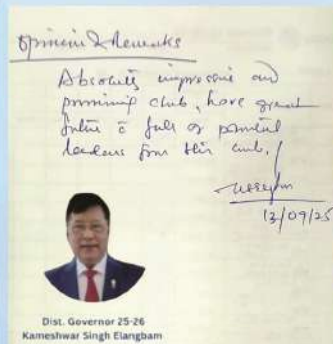 Opinion & Remarks
Absolutely impressive and
promising club, have great
future c̄ full of potential
leaders from this club.
13/09/25
Dist. Governor 25-26
Kameshwar Singh Elangbam